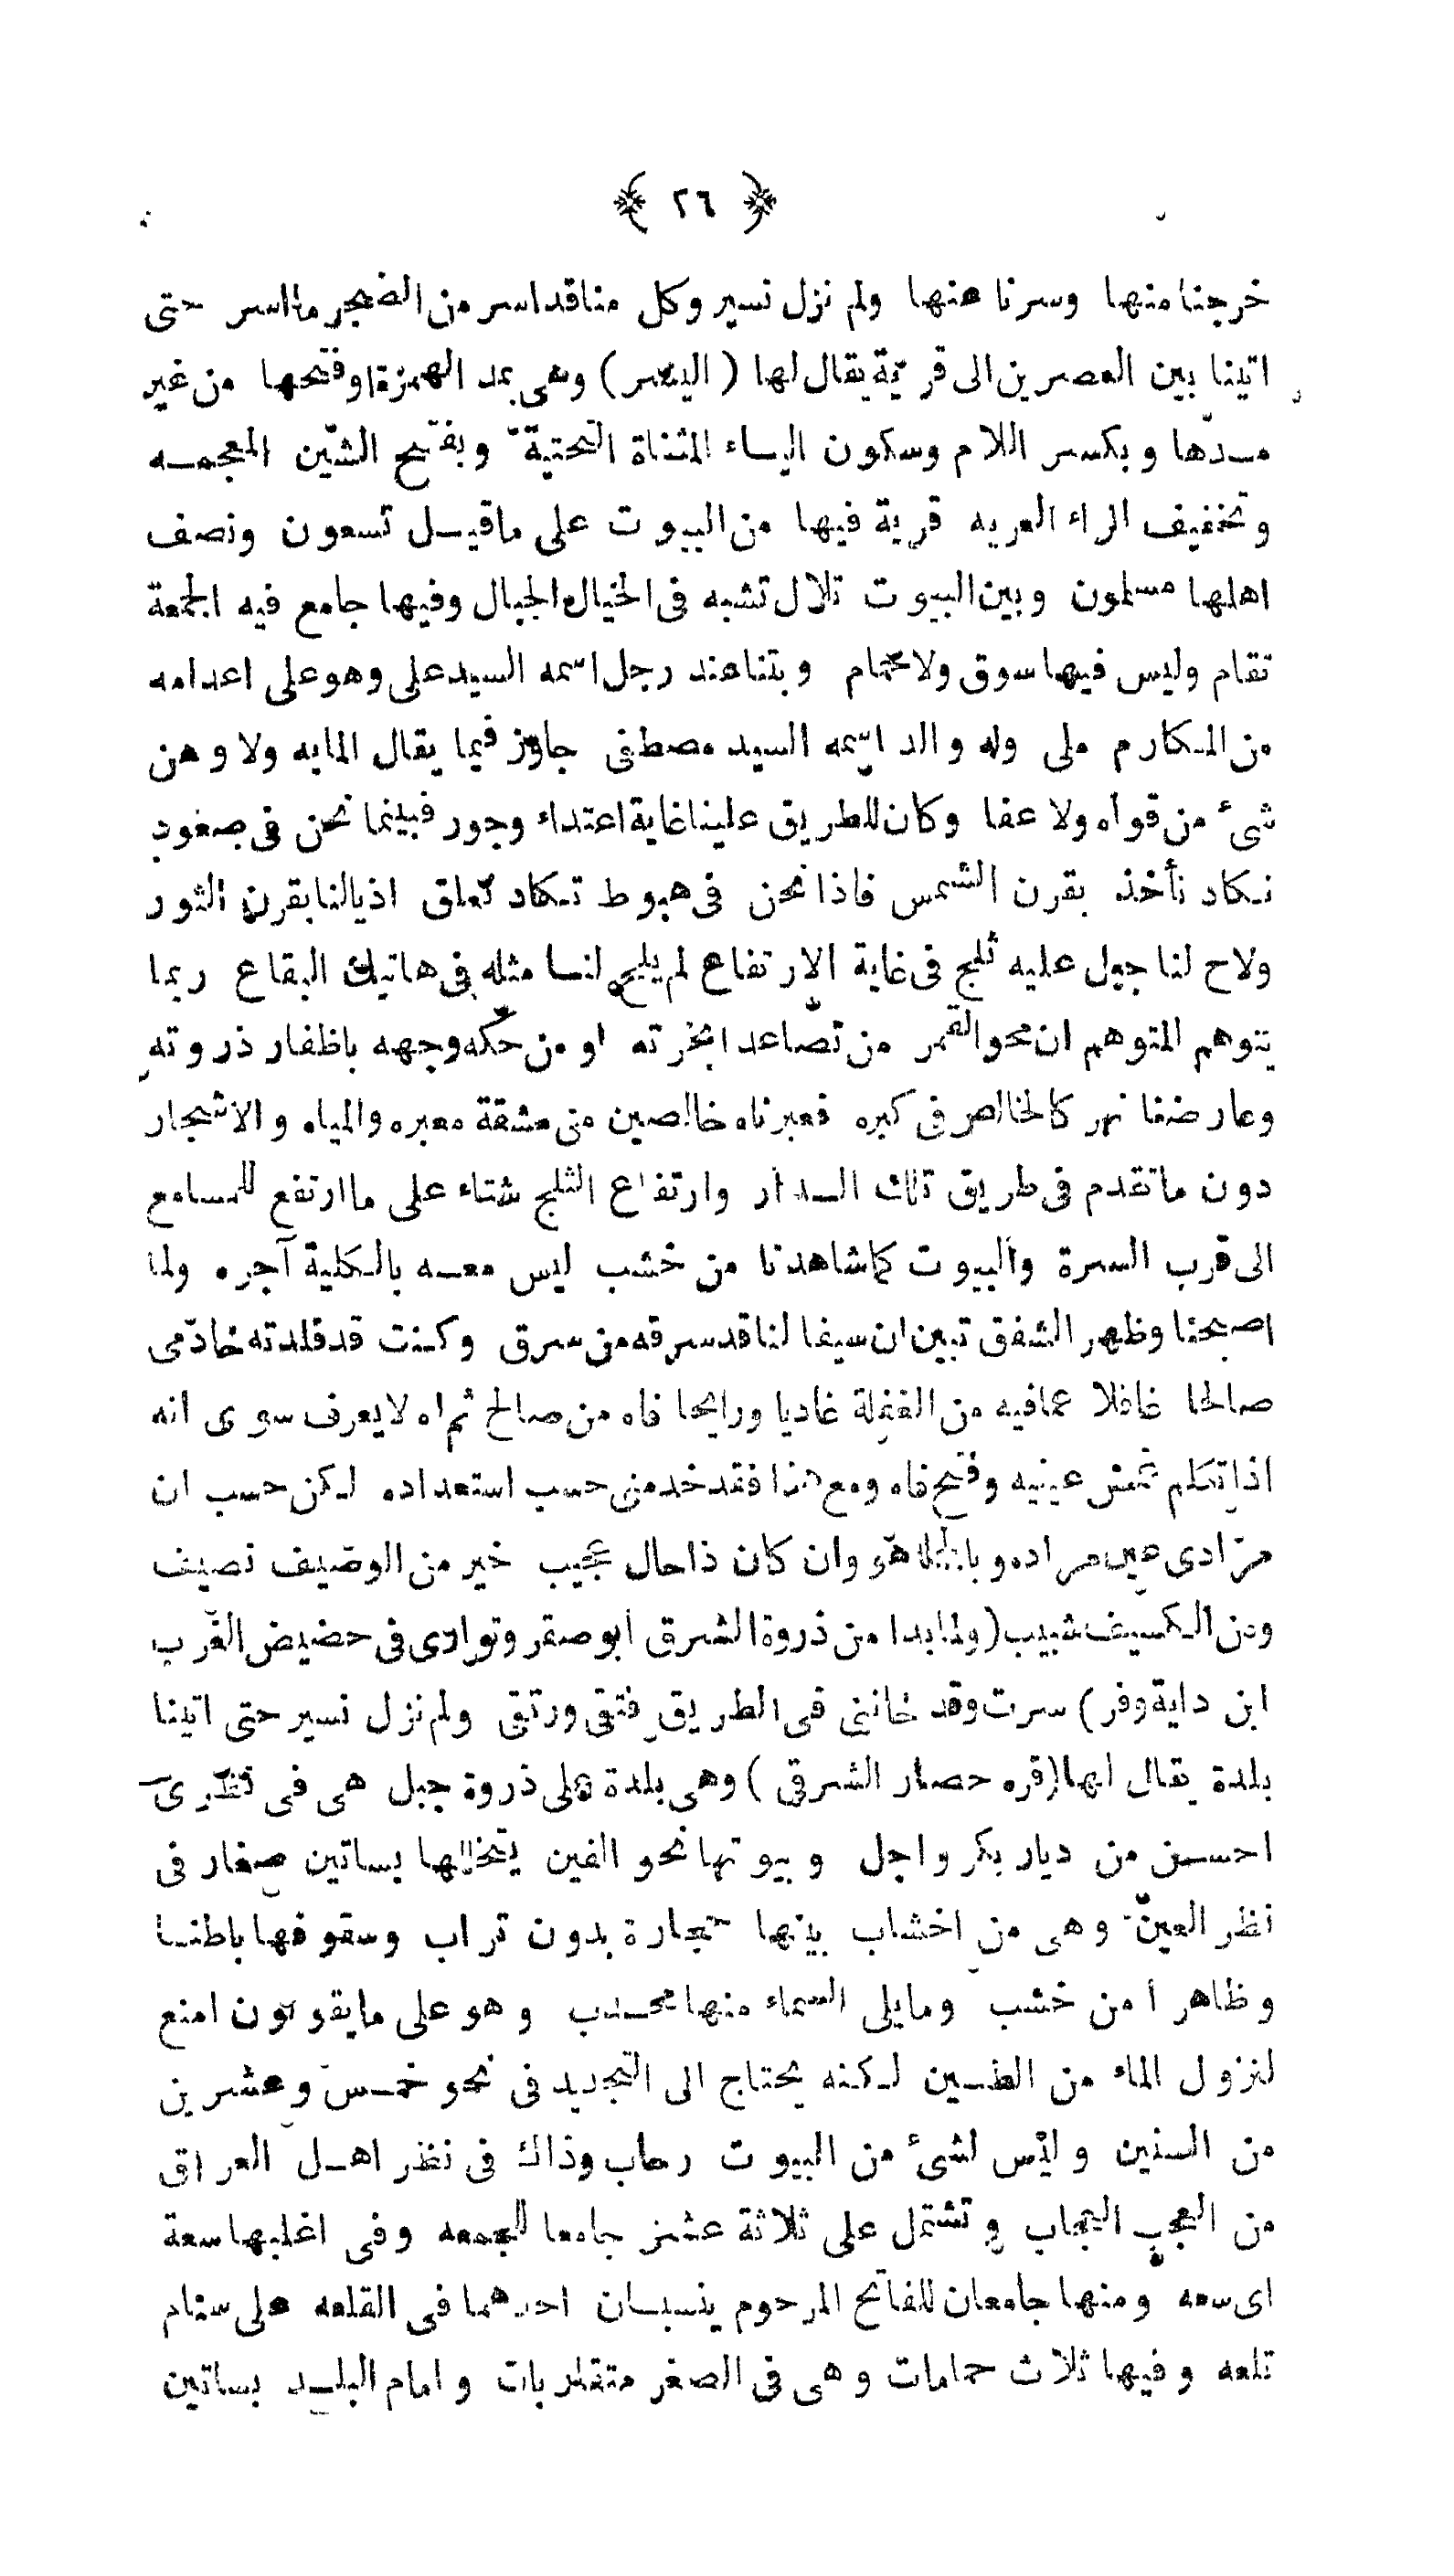 ﴿ ٢٦ ﴾
خرجنا منها وسرنا عنها ولم نزل نسير وكل منا قد اسر من الضجر ما اسر حتى
اتينا بين العصرين الى قرية يقال لها ( اليشر ) وهى بمد الهمزة او فتحها من غير
مدّها وبكسر اللام وسكون الياء المثناة التحتية وبفتح الشين المعجمه
وتخفيف الراء العريه قرية فيها من البيوت على ماقيل تسعون ونصف
اهلها مسلمون وبين البيوت تلال تشبه فى الخيال الجبال وفيها جامع فيه الجمعة
تقام وليس فيها سوق ولا حمام وبتنا عند رجل اسمه السيد على وهو على اعدامه
من المكارم ملى وله والد اسمه السيد مصطفى جاوز فيما يقال المايه ولا وهن
شئ من قواه ولا عفا وكان للطريق علينا غاية اعتداء وجور فبينما نحن فى صعود
نكاد نأخذ بقرن الشمس فاذا نحن فى هبوط تكاد تعلق اذيالنا بقرن الثور
ولاح لنا جبل عليه ثلج فى غاية الارتفاع لم يلح لنا مثله فى هاتيك البقاع ربما
يتوهم المتوهم ان محو القمر من تصاعد ابخرته او من حكه وجهه باظفار ذروته
وعارضنا نهر كالخالص فى كبره فعبرناه خالصين من مشقة معبره والمياه والاشجار
دون ماتقدم فى طريق تلك الدار وارتفاع الثلج شتاء على ما ارتفع للسامع
الى قرب السرة والبيوت كما شاهدنا من خشب ليس معه بالكلية آجره ولما
اصبحنا وظهر الشفق تبين ان سيفا لنا قد سرقه من سرق وكنت قد قلدته خادمى
صالحا غافلا عما فيه من الغفلة غاديا ورايحا فاه من صالح ثم اه لا يعرف سوى انه
اذا تكلم غمض عينيه وفتح فاه ومع هذا فقد خدمنى حسب استعداده لكن حسب ان
مرادى عين مراده وبالجملة هو وان كان ذا حال عجيب خير من الوصيف نصيف
ومن الكسيف شبيب ( ولما بدا من ذروة الشرق ابو صقر وتوارى فى حضيض الغرب
ابن داية وفر ) سرت وقد خاننى فى الطريق فتقى ورتقى ولم نزل نسير حتى اتينا
بلدة يقال لها ( قره حصار الشرقى ) وهى بلدة على ذروة جبل هى فى نظرى
احسن من ديار بكر واجل وبيوتها نحو الفين يتخللها بساتين صغار فى
نظر العين وهى من اخشاب بينها حجارة بدون تراب وسقوفها باطنا
وظاهرا من خشب ومايلى السماء منها محدب وهو على مايقولون امنع
لنزول الماء من الطين لكنه يحتاج الى التجديد فى نحو خمس وعشرين
من السنين وليس لشئ من البيوت رحاب وذاك فى نظر اهل العراق
من العجب العجاب وتشتمل على ثلاثة عشر جامعا للجمعه وفى اغلبها سعة
اى سعه ومنها جامعان للفاتح المرحوم ينسبان احدهما فى القلعه على سنام
تلعه وفيها ثلاث حمامات وهى فى الصغر متقاربات وامام البلد بساتين